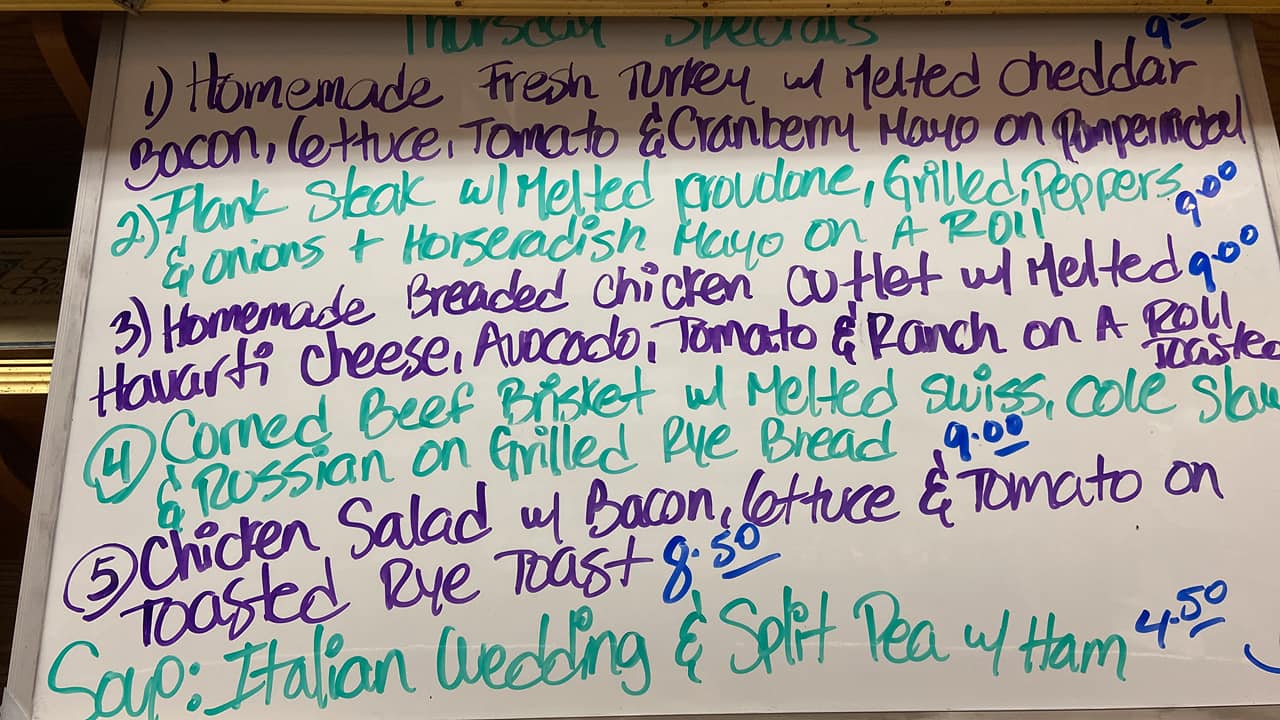 Thursday Specials
9.00
1) Homemade Fresh Turkey w/ Melted Cheddar
Bacon, Lettuce, Tomato & Cranberry Mayo on Pumpernickel
2) Flank Steak w/ Melted Provolone, Grilled, Peppers 9.00
& onions + Horseradish Mayo on A Roll
3) Homemade Breaded Chicken Cutlet w/ Melted 9.00
Havarti Cheese, Avocado, Tomato & Ranch on A Roll
Toasted
4) Corned Beef Brisket w/ Melted Swiss, Cole Slaw
& Russian on Grilled Rye Bread 9.00
5) Chicken Salad w/ Bacon, Lettuce & Tomato on
Toasted Rye Toast 8.50
Soup: Italian Wedding & Split Pea w/ Ham 4.50